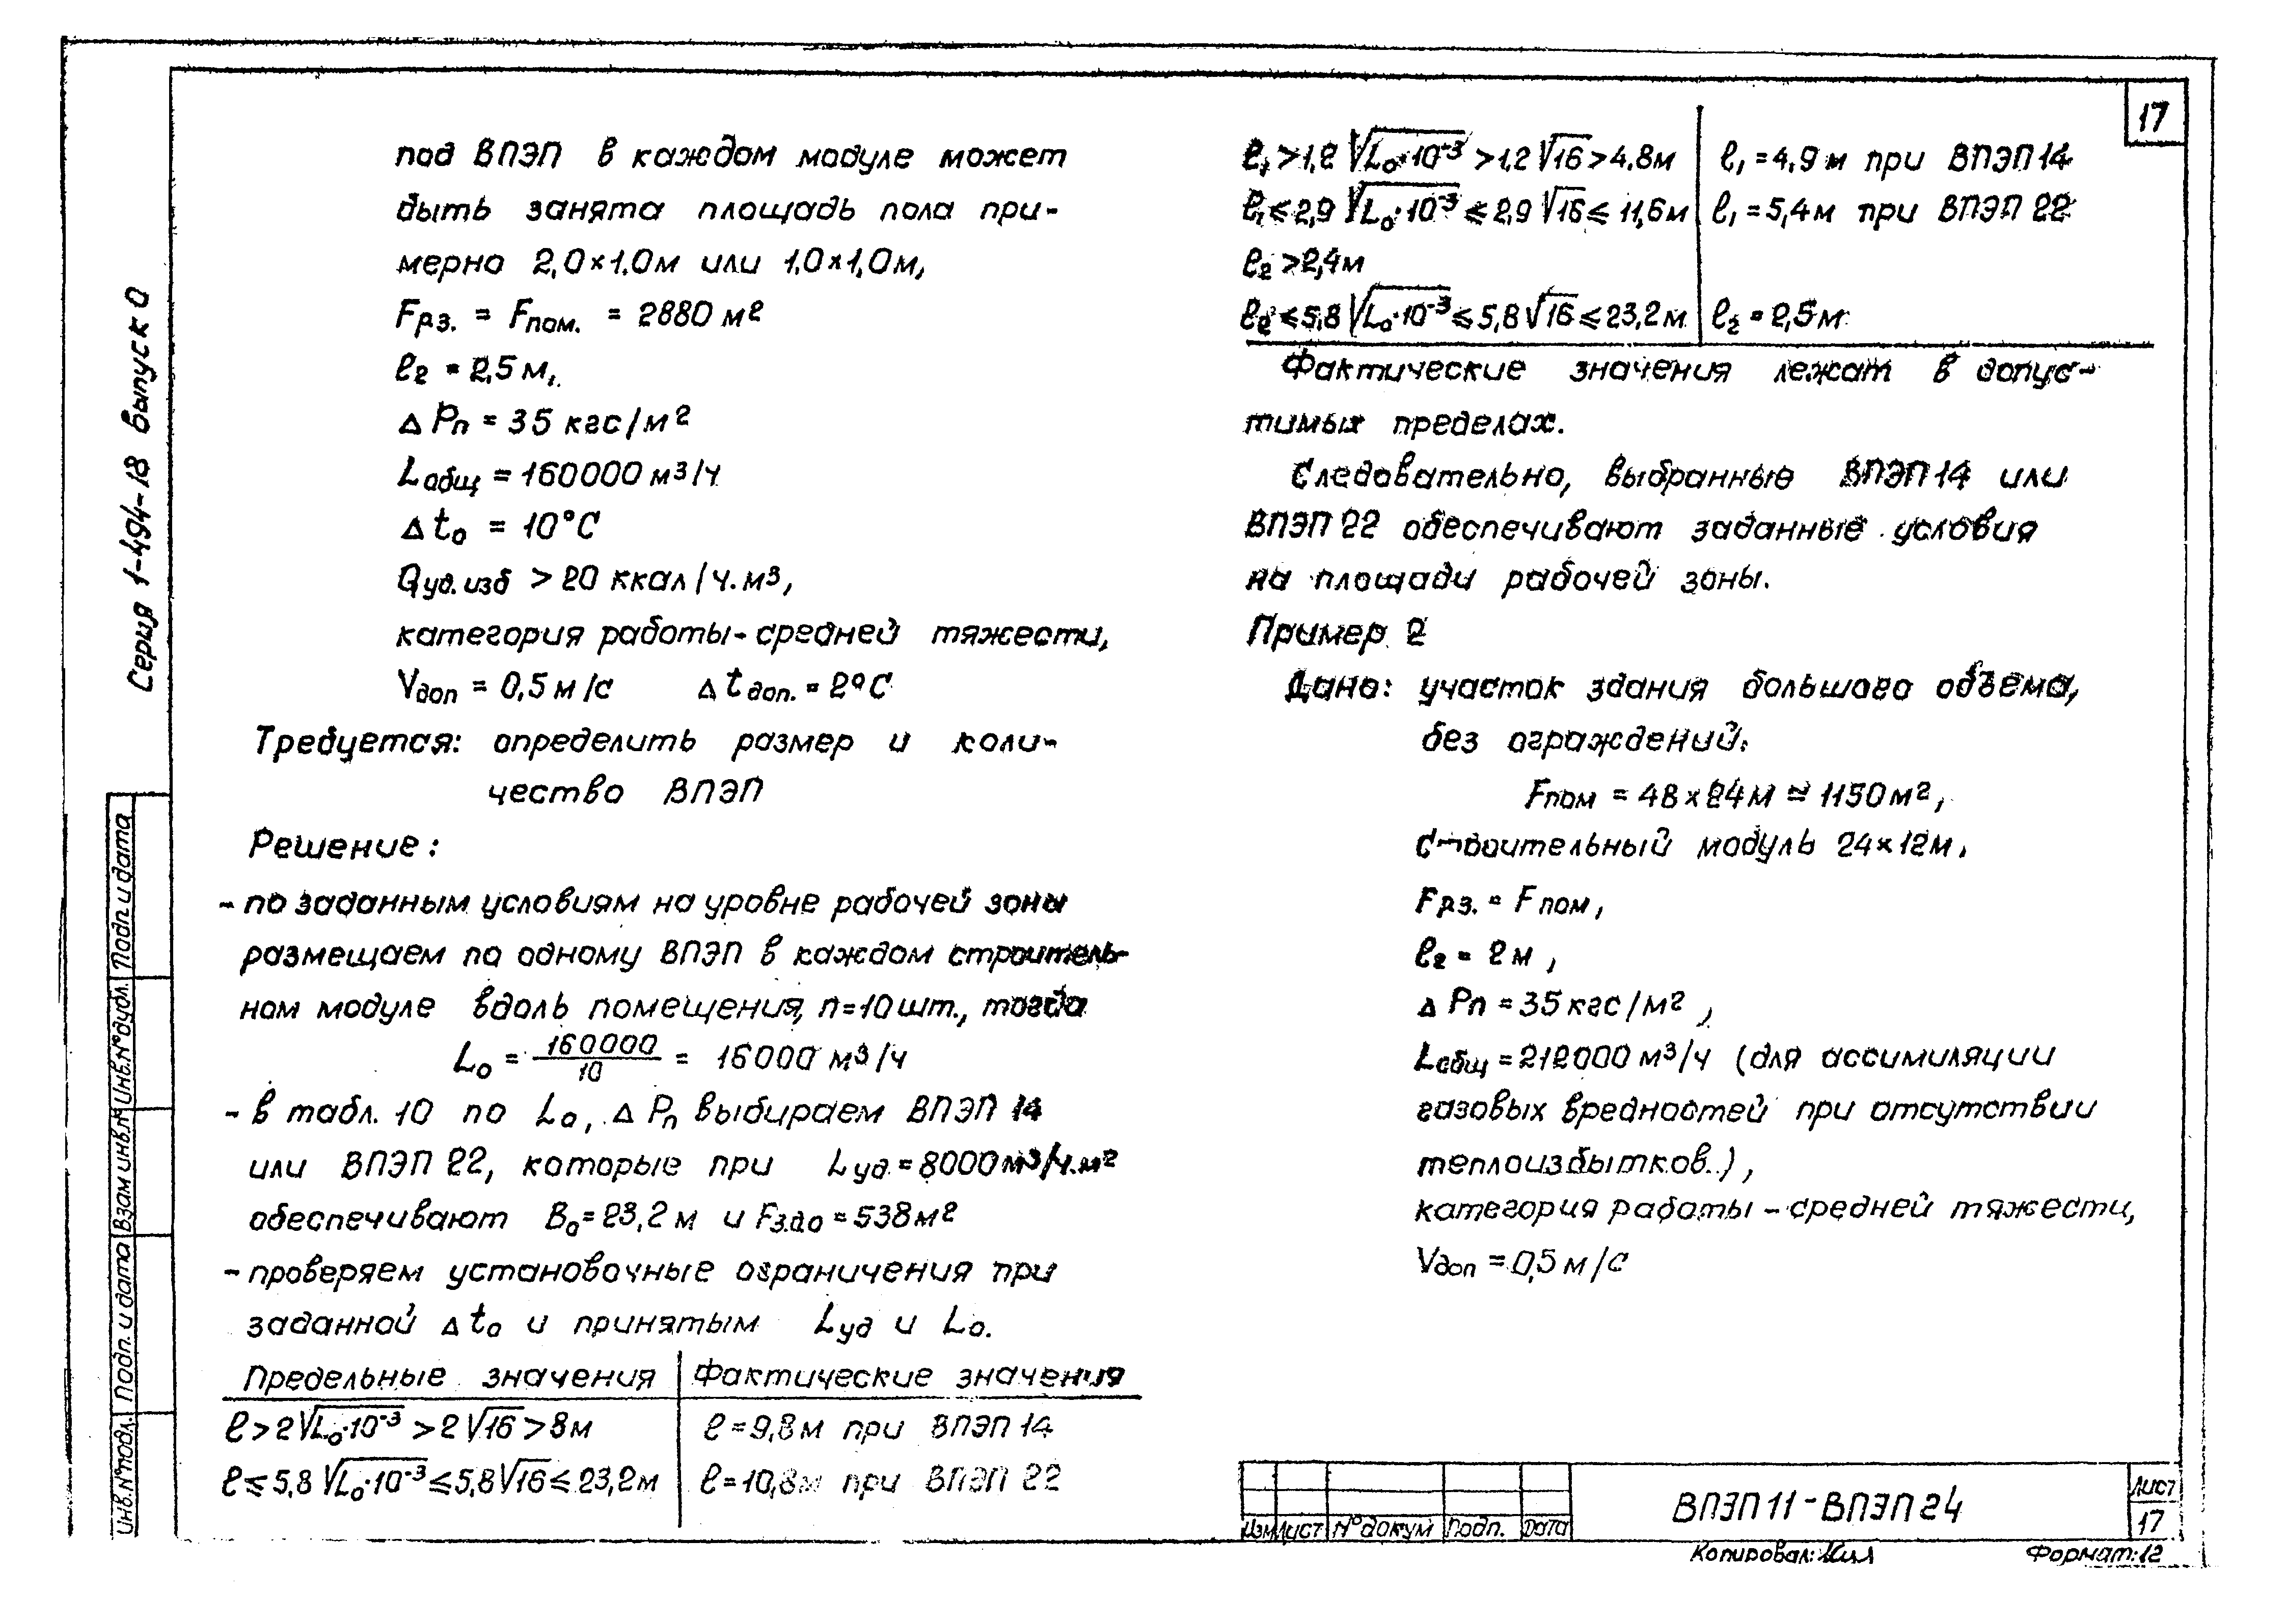 17
Серия 1-494-18 выпуск 0
под ВПЭП в каждом модуле может
быть занята площадь пола при-
мерно 2,0×1,0м или 1,0×1,0м,
Fр.з. = Fпом. = 2880 м²
ℓ₂ = 2,5 м,
Δ Pп = 35 кгс/м²
Lобщ = 160000 м³/ч
Δ t₀ = 10°С
Qуд.изб > 20 ккал/ч.м³,
категория работы - средней тяжести,
Vдоп = 0,5 м/с Δ t доп. = 2°С
Требуется: определить размер и коли-
чество ВПЭП
Решение:
- по заданным условиям на уровне рабочей зоны
размещаем по одному ВПЭП в каждом строитель-
ном модуле вдоль помещения, n=10 шт., тогда
L₀ = 160000/10 = 16000 м³/ч
- в табл. 10 по L₀, Δ Pп выбираем ВПЭП 14
или ВПЭП 22, которые при Lуд = 8000 м³/ч.м²
обеспечивают B₀ = 23,2 м и Fз.д.о = 538 м²
- проверяем установочные ограничения при
заданной Δ t₀ и принятым Lуд и L₀.
Предельные значения | Фактические значения
ℓ > 2 √L₀·10⁻³ > 2 √16 > 8 м | ℓ = 9,8 м при ВПЭП 14
ℓ ≤ 5,8 √L₀·10⁻³ ≤ 5,8 √16 ≤ 23,2 м | ℓ = 10,8 м при ВПЭП 22
ℓ₁ > 1,2 √L₀·10⁻³ > 1,2 √16 > 4,8 м | ℓ₁ = 4,9 м при ВПЭП 14
ℓ₁ ≤ 2,9 √L₀·10⁻³ ≤ 2,9 √16 ≤ 11,6 м | ℓ₁ = 5,4 м при ВПЭП 22
ℓ₂ > 2,4 м
ℓ₂ ≤ 5,8 √L₀·10⁻³ ≤ 5,8 √16 ≤ 23,2 м | ℓ₂ = 2,5 м
Фактические значения лежат в допус-
тимых пределах.
Следовательно, выбранные ВПЭП 14 или
ВПЭП 22 обеспечивают заданные условия
на площади рабочей зоны.
Пример 2
Дано: участок здания большого объема,
без ограждений:
Fпом = 48 × 24 м ≅ 1150 м²,
строительный модуль 24×12 м,
Fр.з. = Fпом,
ℓ₂ = 2 м,
Δ Pп = 35 кгс/м²,
Lобщ = 212000 м³/ч (для ассимиляции
газовых вредностей при отсутствии
теплоизбытков.),
категория работы - средней тяжести,
Vдоп = 0,5 м/с
Инв.№подл. Подп. и дата Взам инв.№ Инв.№дубл. Подп. и дата
Изм Лист №докум Подп. Дата
ВПЭП 11 - ВПЭП 24
Лист
17
Копировал:
Формат: 12